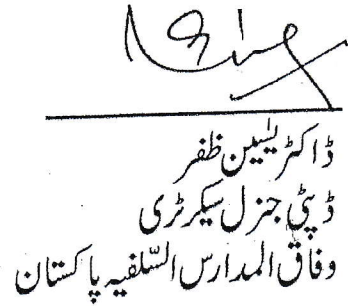 ڈاکٹر یٰسین ظفر
ڈپٹی جنرل سیکرٹری
وفاق المدارس السّلفیہ پاکستان